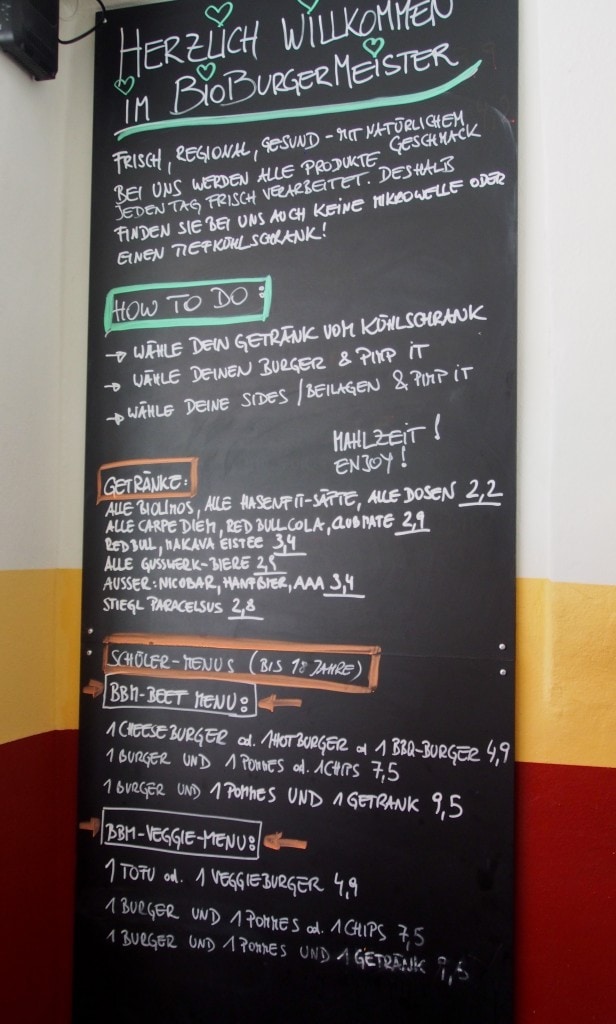 HERZLICH WILLKOMMEN
IM BIOBURGERMEISTER
FRISCH, REGIONAL, GESUND - MIT NATÜRLICHEM
GESCHMACK
BEI UNS WERDEN ALLE PRODUKTE
JEDEN TAG FRISCH VERARBEITET. DESHALB
FINDEN SIE BEI UNS AUCH KEINE MIKROWELLE ODER
EINEN TIEFKÜHLSCHRANK!
HOW TO DO:
→ WÄHLE DEIN GETRÄNK VOM KÜHLSCHRANK
→ WÄHLE DEINEN BURGER & PIMP IT
→ WÄHLE DEINE SIDES / BEILAGEN & PIMP IT
MAHLZEIT!
ENJOY!
GETRÄNKE:
ALLE BIOLIMOS, ALLE HASENFIT-SÄFTE, ALLE DOSEN 2,2
ALLE CARPE DIEM, RED BULL COLA, CLUB MATE 2,9
RED BULL, MAKAVA EISTEE 3,4
ALLE GUSSWERK-BIERE 2,5
AUSSER: NICOBAR, HANFBIER, AAA 3,4
STIEGL PARACELSUS 2,8
SCHÜLER-MENUS (BIS 18 JAHRE)
BBM-BEET MENU:
1 CHEESEBURGER od. 1 HOTBURGER od 1 BBQ-BURGER 4,9
1 BURGER UND 1 POMMES od. 1 CHIPS 7,5
1 BURGER UND 1 POMMES UND 1 GETRÄNK 9,5
BBM-VEGGIE-MENU:
1 TOFU od. 1 VEGGIEBURGER 4,9
1 BURGER UND 1 POMMES od. 1 CHIPS 7,5
1 BURGER UND 1 POMMES UND 1 GETRÄNK 9,5